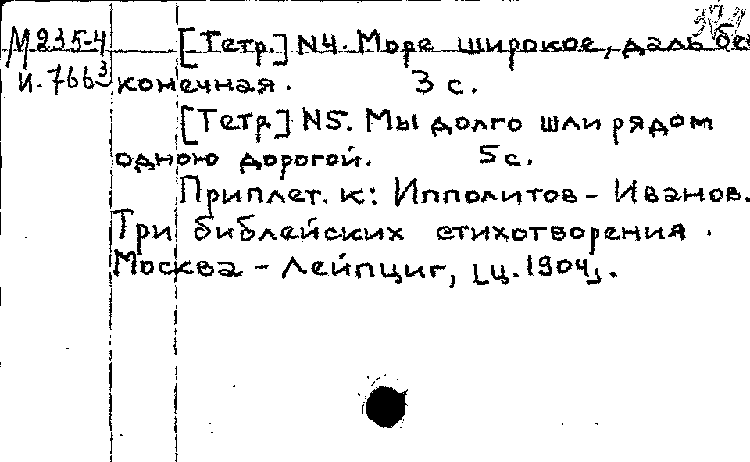 М235-4 [Тетр.] N4. Море широкое, даль бес
И.766³ конечная. 3 с.
[Тетр] N5. Мы долго шли рядом
одною дорогой. 5с.
Приплет. к: Ипполитов-Иванов.
Три библейских стихотворения.
Москва - Лейпциг, [ц. 1904].